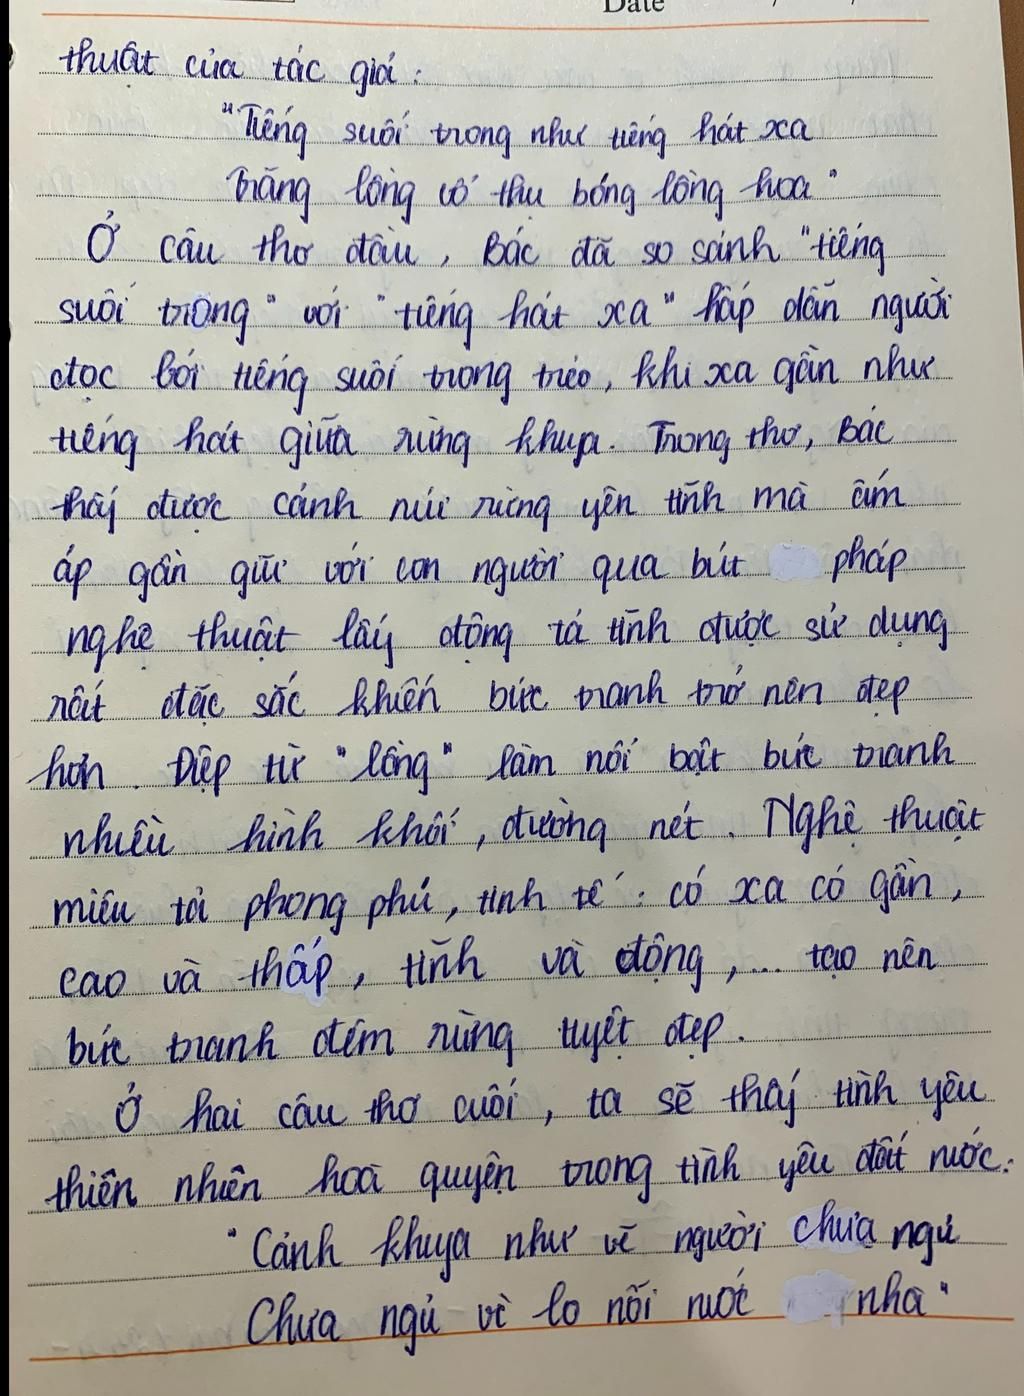 Date / /
thuật của tác giả :
"Tiếng suối trong như tiếng hát xa
Trăng lồng cổ thụ bóng lồng hoa"
Ở câu thơ đầu, Bác đã so sánh "tiếng
suối trong" với "tiếng hát xa" hấp dẫn người
đọc bởi tiếng suối trong trẻo, khi xa gần như
tiếng hát giữa rừng khuya. Trong thơ, Bác
thấy được cảnh núi rừng yên tĩnh mà ấm
áp gần gũi với con người qua bút pháp
nghệ thuật lấy động tả tĩnh được sử dụng
rất đặc sắc khiến bức tranh trở nên đẹp
hơn. Điệp từ "lồng" làm nổi bật bức tranh
nhiều hình khối, đường nét. Nghệ thuật
miêu tả phong phú, tinh tế : có xa có gần,
cao và thấp, tĩnh và động,... tạo nên
bức tranh đêm rừng tuyệt đẹp.
Ở hai câu thơ cuối, ta sẽ thấy tình yêu
thiên nhiên hoà quyện trong tình yêu đất nước:
"Cảnh khuya như vẽ người chưa ngủ
Chưa ngủ vì lo nỗi nước nhà"